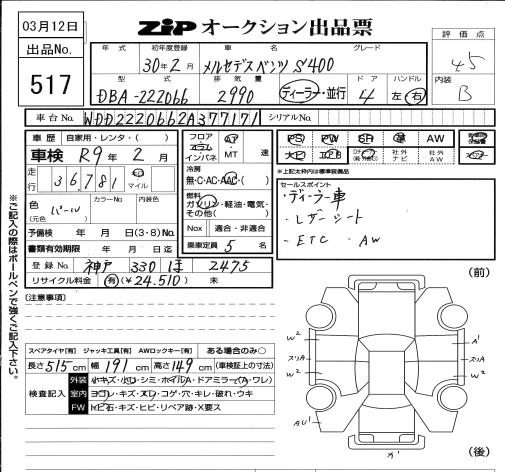 03月12日
ZIP オークション出品票
出品No.
517
評価点
4.5
内装
B
年式 初年度登録 車名 グレード
30年2月 メルセデスベンツ S400
型式 排気量 ドア ハンドル
DBA-222066 2990 ディーラー・並行 4 左・右
車台No. WDD2220662A377171 シリアルNo.
車歴 自家用・レンタ・( )
車検 R9年2月
走行 36,781 キロ マイル
色(元色) パール カラーNo. 内装色
予備検 年 月 日(3・8)No.
書類有効期限 年 月 日迄
登録No. 神戸 330 ほ 2475
リサイクル料金 有(¥24,510) 未
フロア コラム インパネ AT MT 速
冷房 無・C・AC・AAC・( )
燃料 ガソリン・軽油・電気・その他( )
Nox 適合・非適合
乗車定員 5 名
PS PW SR 革 AW
ナビ 社外ナビ 社外AW
*上記太枠内は標準装備品
セールスポイント
・ディーラー車
・レザーシート
・ETC ・AW
(注意事項)
スペアタイヤ[有] ジャッキ工具[有] AWロックキー[有] ある場合のみ○
長さ515cm 幅191cm 高さ149cm (車検証上の寸法)
検査記入
外装 小キズ・小U・シミ・ホイルA・ドアミラー(A・ワレ)
室内 ヨゴレ・キズ・スレ・コゲ・穴・キレ・破れ・ウキ
FW トビ石・キズ・ヒビ・リペア跡・X要ス
※ご記入の際はボールペンで強くご記入下さい。
(前)
W2 A1
スリA スリA
W2 W2
AU1
(後)